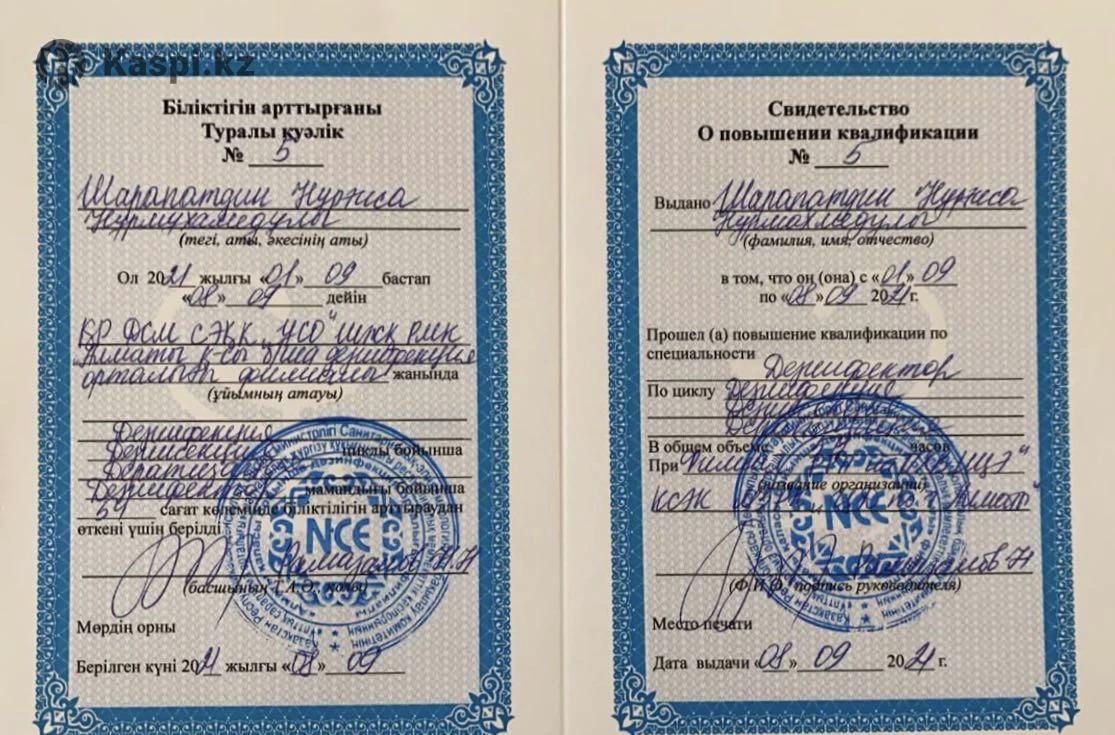 Kaspi.kz
Біліктігін арттырғаны
Туралы қуәлік
№ 5
Шарапатдин Нұрғиса
Нурмухамедулы
(тегі, аты, әкесінің аты)
Ол 2021 жылғы «01» 09 бастап
«08» 09 дейін
ҚР ДСМ СЭҚК "ҰСО" ШЖҚ РМК
"Алматы қ-сы б-ша дезинфекция
орталығы филиалы жанында
(ұйымның атауы)
Дезинфекция
Дезинсекция циклы бойынша
Дератизация
Дезинфектор мамандығы бойынша
54 сағат көлемінде біліктілігін арттыраудан
өткені үшін берілді
Рамазанов Н.Н
(басшының Т.А.Ә., қолы)
Мөрдің орны
Берілген күні 2021 жылғы «08» 09
NCE
Свидетельство
О повышении квалификации
№ 5
Выдано Шарапатдин Нұрғиса
Нурмахмедулы
(фамилия, имя, отчество)
в том, что он (она) с «01» 09
по «08» 09 2021г.
Прошел (а) повышение квалификации по
специальности
Дезинфектор
По циклу Дезинфекция
В общем объеме часов
При
(название организации)
NCE
Рамазанов Н
(Ф.И.О. подпись руководителя)
Место печати
Дата выдачи «08» 09 2021 г.